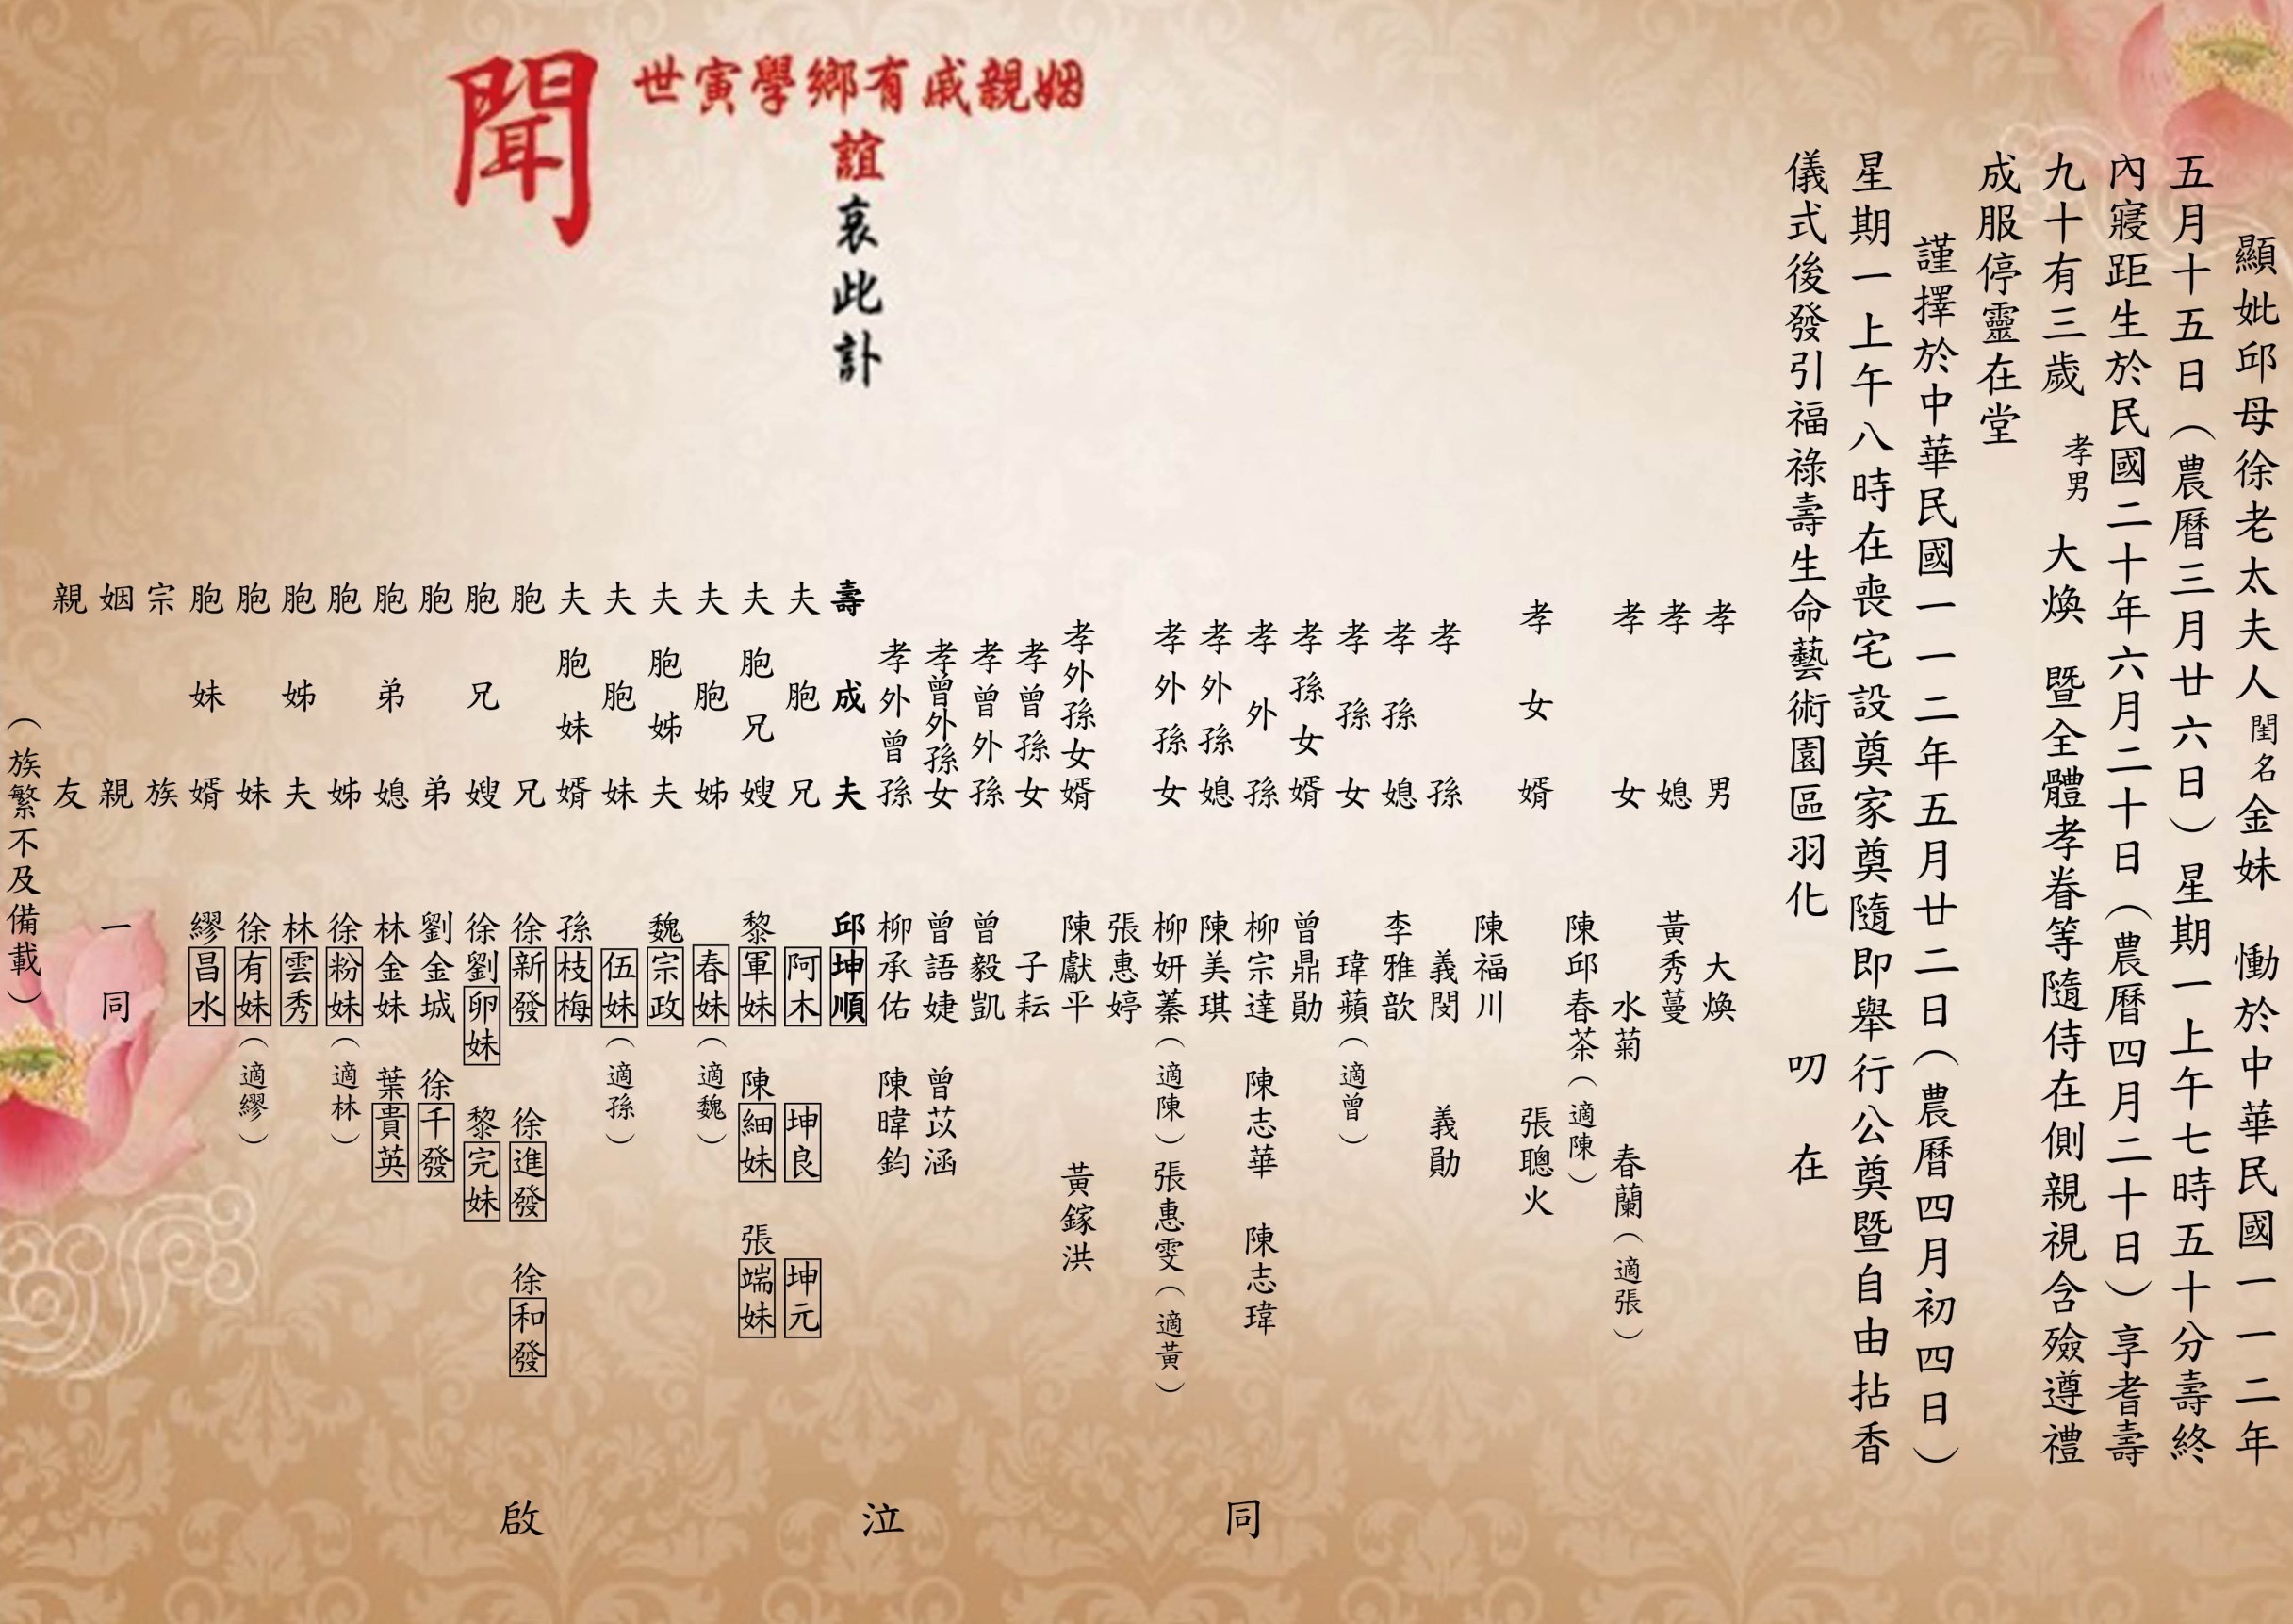 顯妣邱母徐老太夫人閨名金妹　慟於中華民國一一二年
五月十五日（農曆三月廿六日）星期一上午七時五十分壽終
內寢距生於民國二十年六月二十日（農曆四月二十日）享耆壽
九十有三歲　孝男　大煥　暨全體孝眷等隨侍在側親視含殮遵禮
成服停靈在堂
謹擇於中華民國一一二年五月廿二日（農曆四月初四日）
星期一上午八時在喪宅設奠家奠隨即舉行公奠暨自由拈香
儀式後發引福祿壽生命藝術園區羽化　叨　在
姻親戚有鄉學寅世
誼哀此訃
聞
孝男　大煥
孝媳　黃秀蔓
孝女　水菊　春蘭（適張）
陳邱春茶（適陳）
孝女婿　張聰火
陳福川
孝孫　義閔　義勛
孝孫媳　李雅歆
孝孫女　瑋蘋（適曾）
孝孫女婿　曾鼎勛
孝外孫　柳宗達　陳志華　陳志瑋
孝外孫媳　陳美琪
孝外孫女　柳妍蓁（適陳）張惠雯（適黃）
張惠婷
孝外孫女婿　陳獻平　黃鎵洪
孝曾孫女　子耘
孝曾外孫　曾毅凱
孝曾外孫女　曾語婕　曾苡涵
孝外曾孫　柳承佑　陳暐鈞
壽成夫　邱坤順
夫胞兄　阿木　坤良　坤元
夫胞兄嫂　黎軍妹　陳細妹　張端妹
夫胞姊　春妹（適魏）
夫胞姊夫　魏宗政
夫胞妹　伍妹（適孫）
夫胞妹婿　孫枝梅
胞兄　徐新發　徐進發　徐和發
胞兄嫂　徐劉卵妹　黎完妹
胞弟　劉金城　徐千發
胞弟媳　林金妹　葉貴英
胞姊　徐粉妹（適林）
胞姊夫　林雲秀
胞妹　徐有妹（適繆）
胞妹婿　繆昌水
宗族
姻親　一同
親友
（族繁不及備載）
同　泣　啟